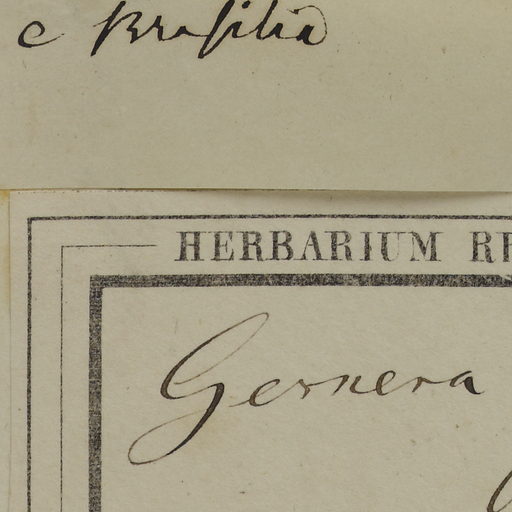 c Brasilia
HERBARIUM
Gesnera